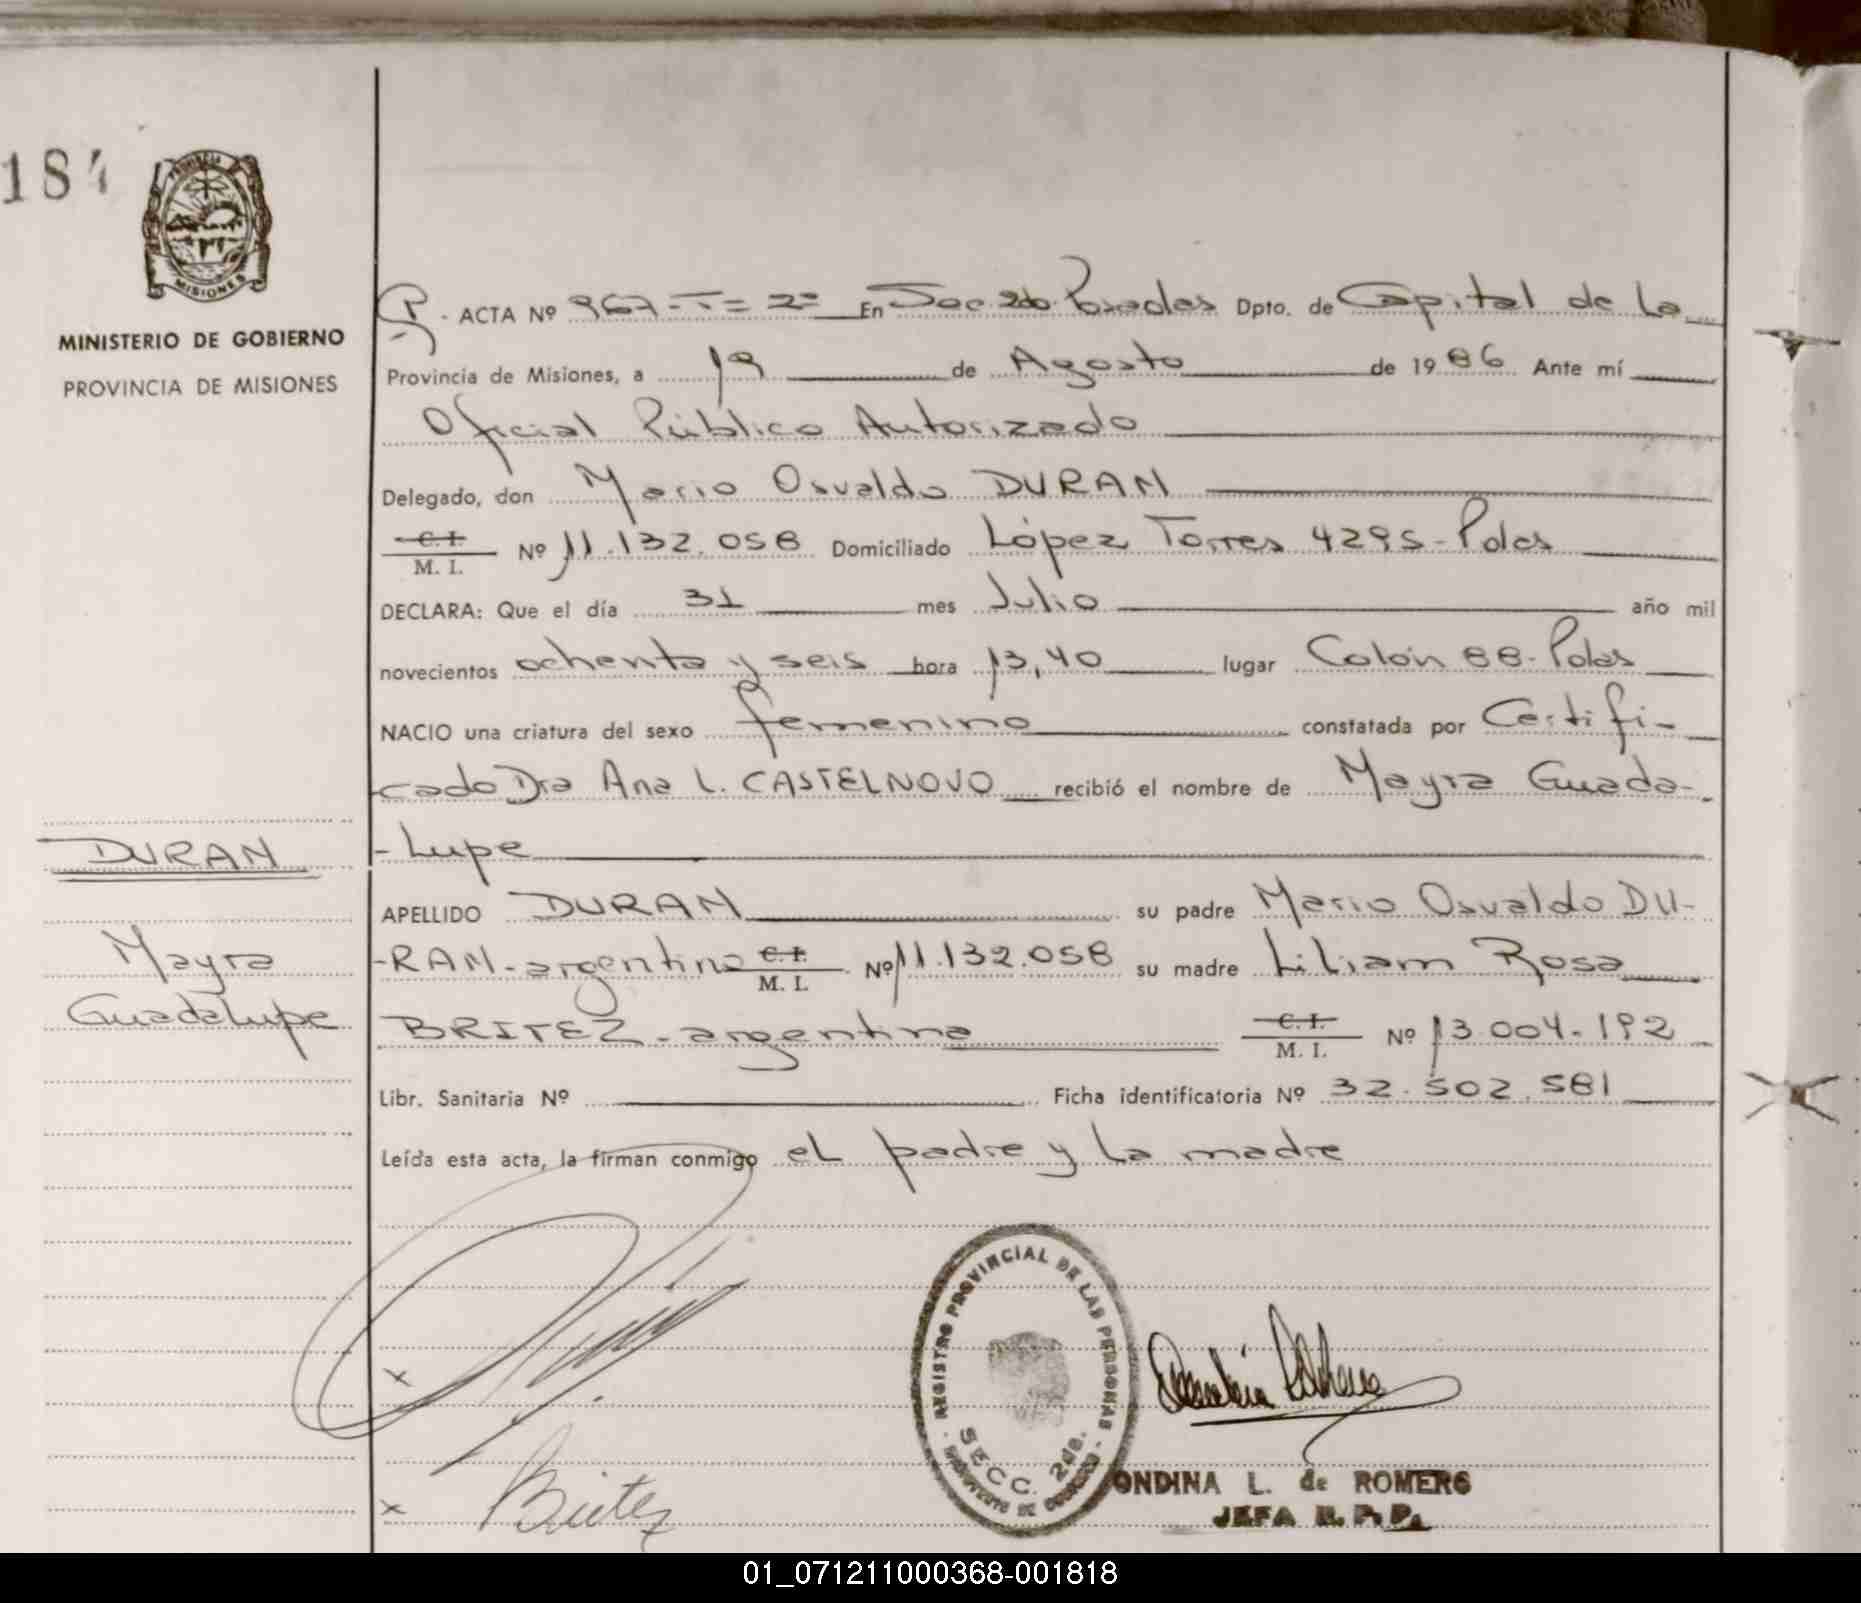 184
PROVINCIA
MISIONES
MINISTERIO DE GOBIERNO
PROVINCIA DE MISIONES
ACTA Nº 967-T= 2º En Sec. 2da. Posadas Dpto. de Capital de La
Provincia de Misiones, a 19 de Agosto de 1986 Ante mí
Oficial Público Autorizado
Delegado, don Mario Osvaldo DURAN
C. I.
M. I. Nº 11.132.058 Domiciliado López Torres 4295-Pdas
DECLARA: Que el día 31 mes Julio año mil
novecientos ochenta y seis hora 13,40 lugar Colón 88-Pdas
NACIO una criatura del sexo femenino constatada por Certifi-
cado Dra Ana L. CASTELNOVO recibió el nombre de Mayra Guada-
-Lupe
DURAN
APELLIDO DURAN su padre Mario Osvaldo DU-
Mayra
-RAN-argentino C. I. M. I. Nº 11.132.058 su madre Liliam Rosa
Guadalupe
BRITEZ-argentina C. I. M. I. Nº 13.004.192
Libr. Sanitaria Nº Ficha identificatoria Nº 32.502.581
Leída esta acta, la firman conmigo el padre y La madre
x
x Britez
REGISTRO PROVINCIAL DE LAS PERSONAS
SECC. 2da.
ONDINA L. de ROMERO
JEFA R. P. P.
01_071211000368-001818